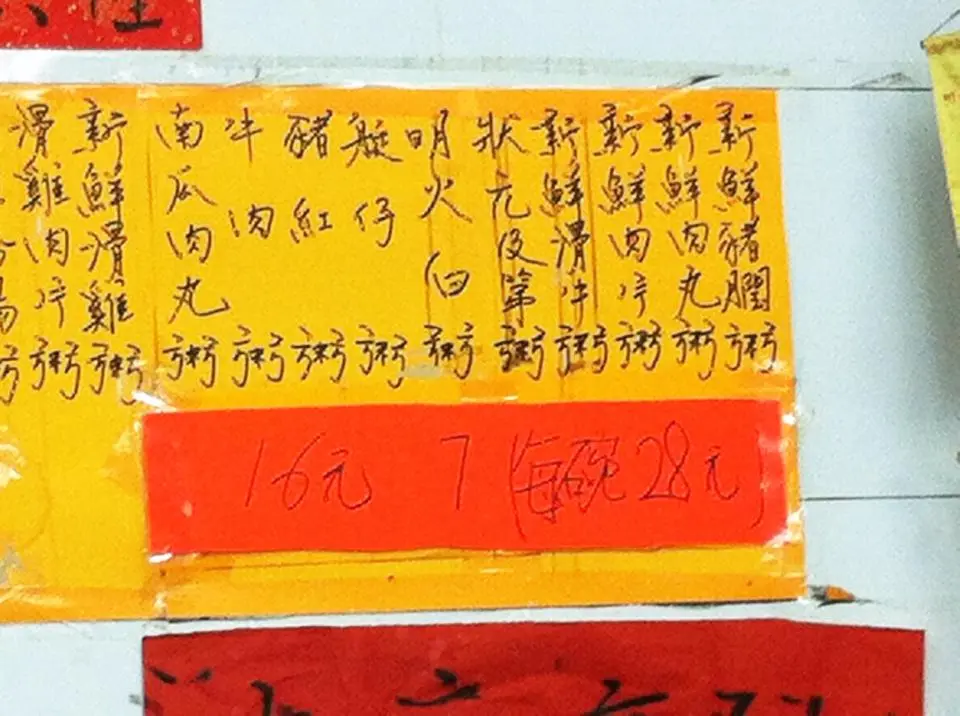 新鮮豬膶粥
新鮮肉丸粥
新鮮肉片粥
新鮮滑牛粥
狀元及第粥
明火白粥
艇仔粥
豬紅粥
牛肉粥
南瓜肉丸粥
新鮮滑雞粥
滑雞肉片粥
16元 7 (每碗28元)